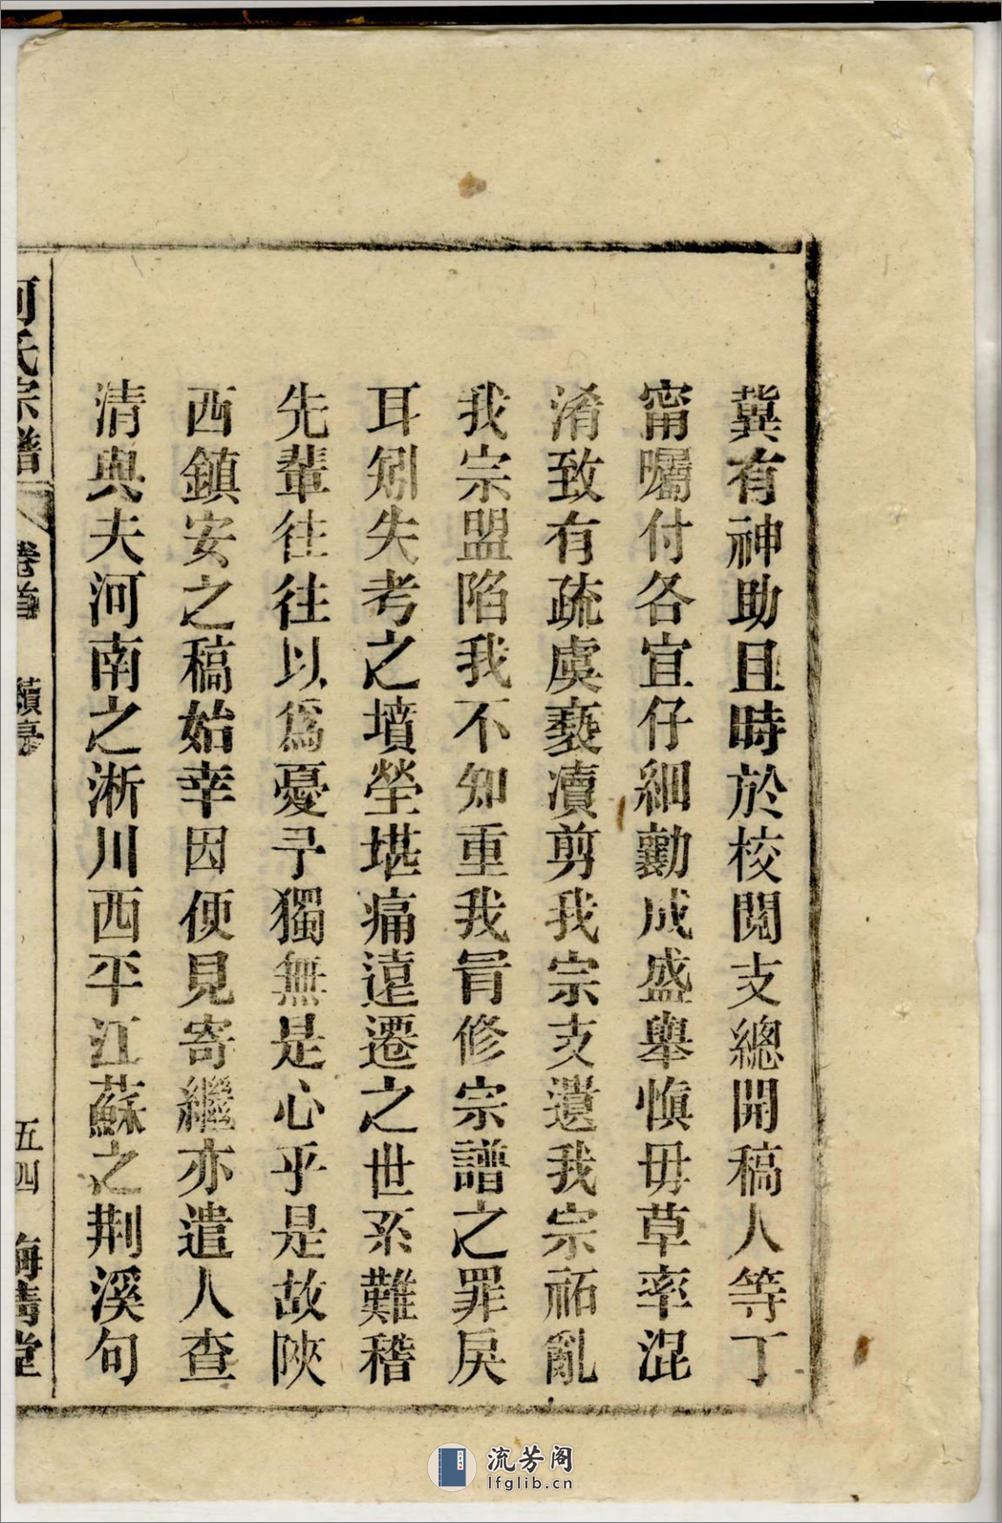 冀有神助且時於校閱支總開稿人等丁
甯囑付各宜仔細勷成盛舉慎毋草率混
淆致有疏虞褻瀆剪我宗支遺我宗祏亂
我宗盟陷我不知重我冒修宗譜之罪戾
耳矧失考之墳塋堪痛遠遷之世系難稽
先輩往往以爲憂予獨無是心乎是故陝
西鎮安之稿始幸因便見寄繼亦遣人查
清與夫河南之淅川西平江蘇之荆溪句
何氏宗譜 卷首 五四
流芳阁
lfglib.cn